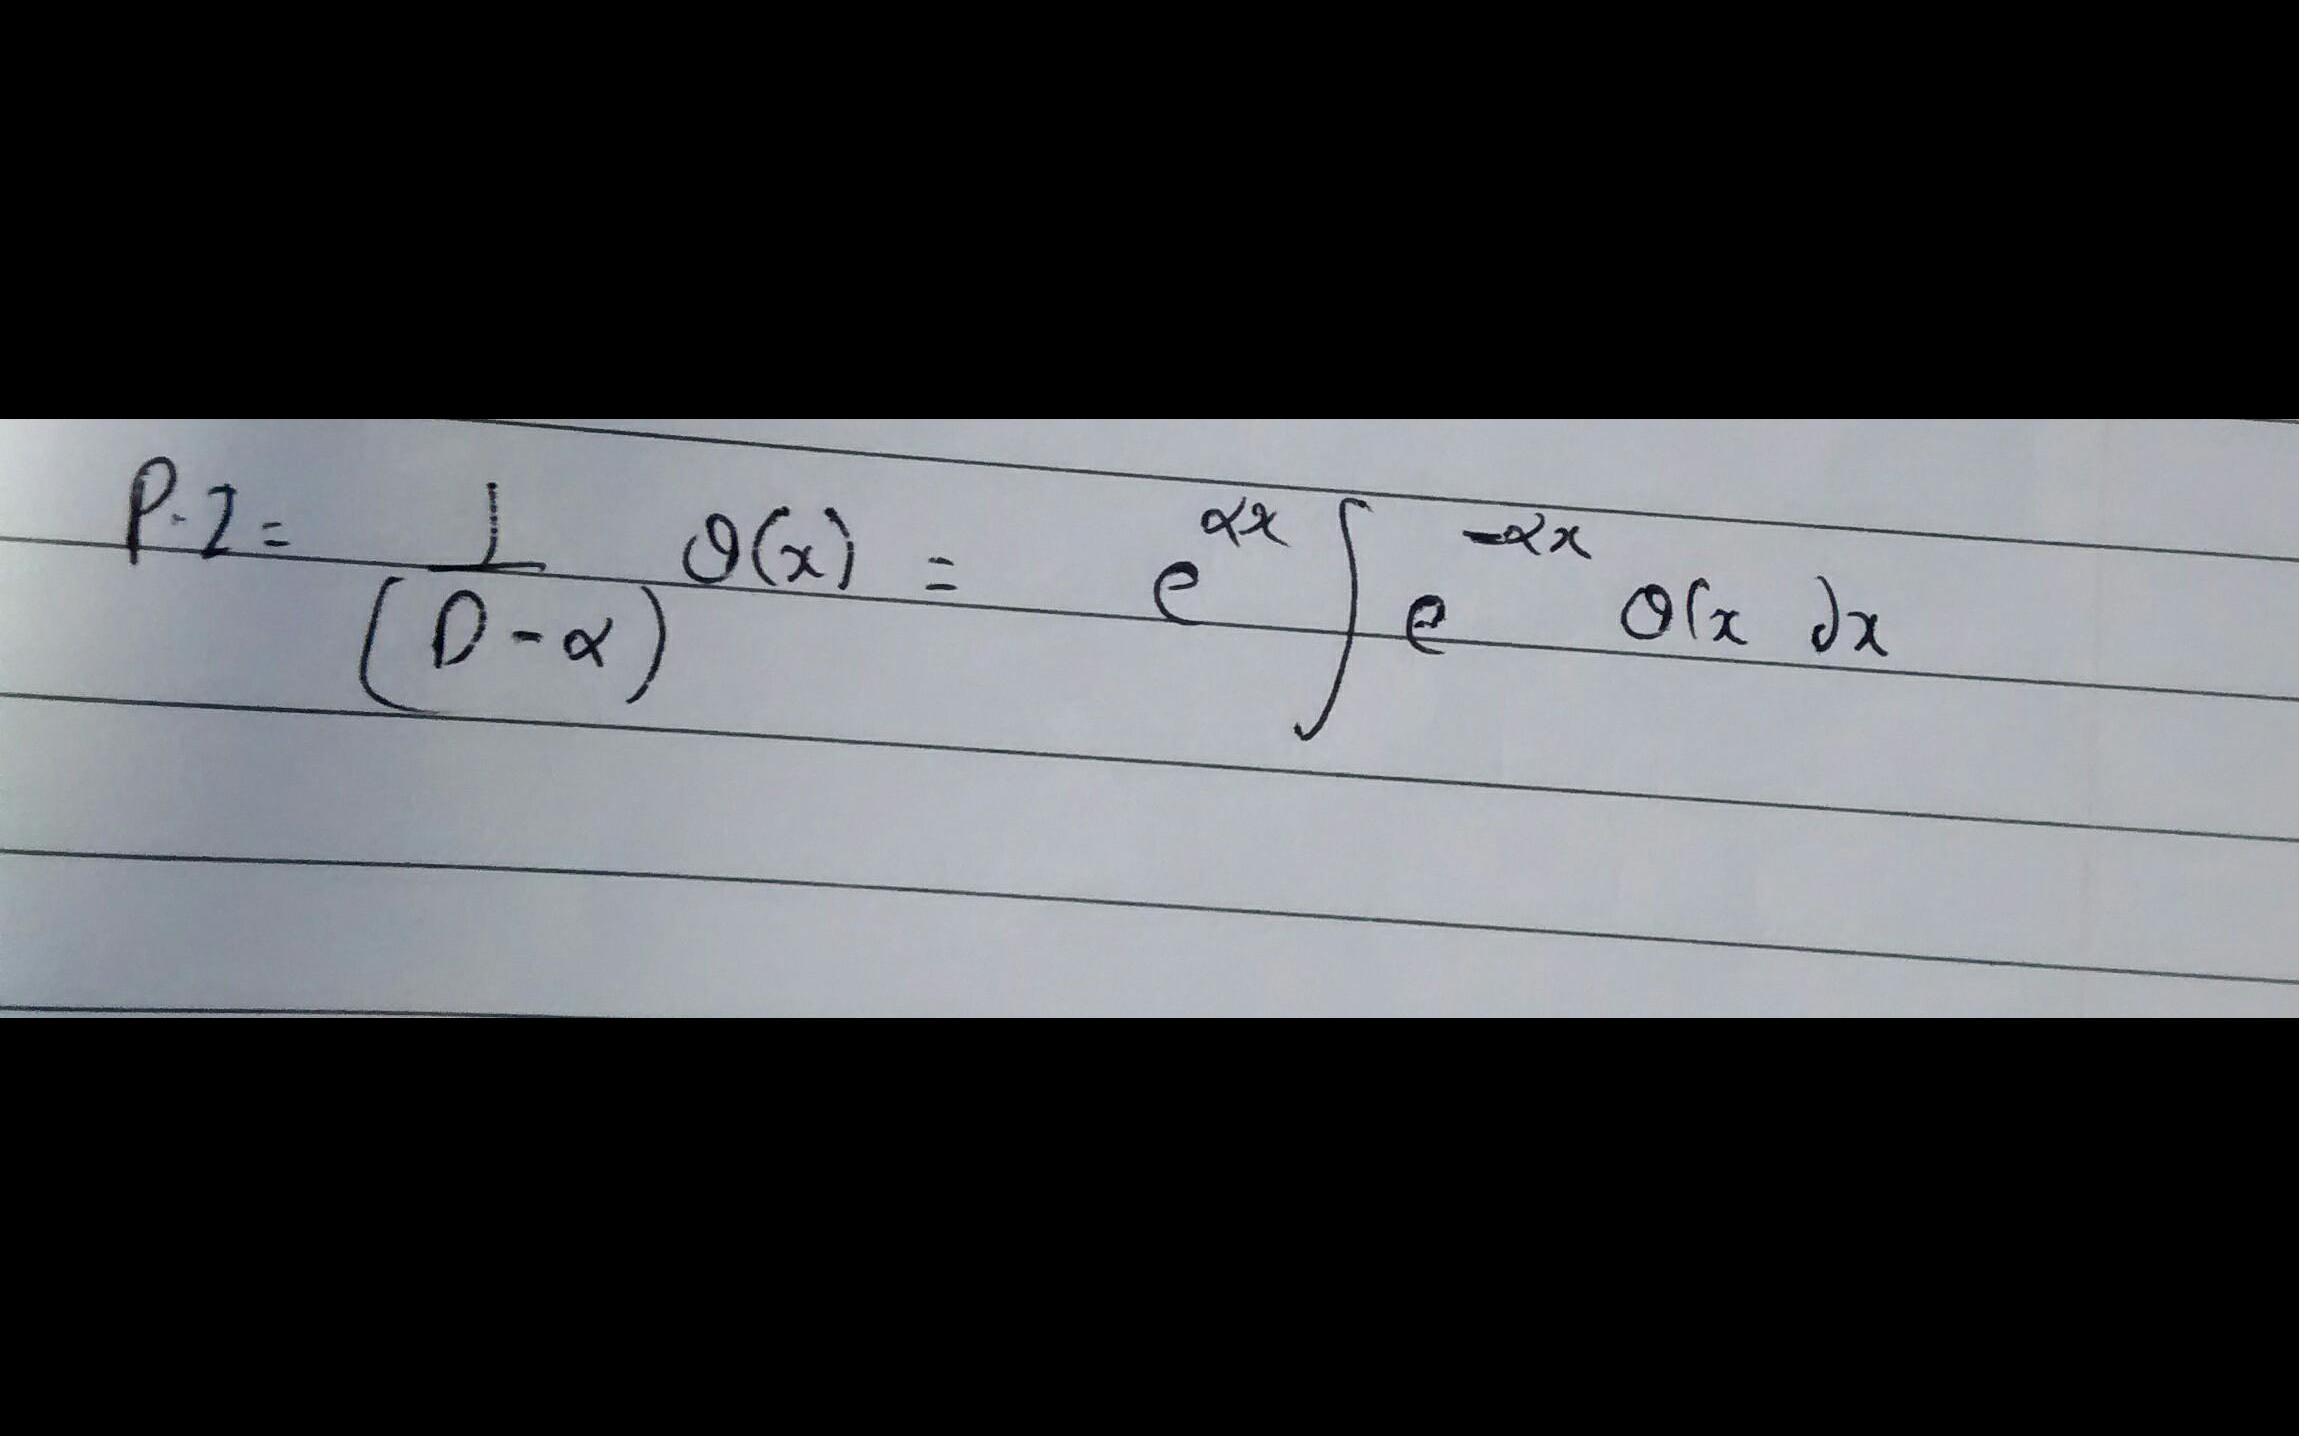 P.I = 1/(D-α) Q(x) = e^{αx} ∫ e^{-αx} Q(x dx